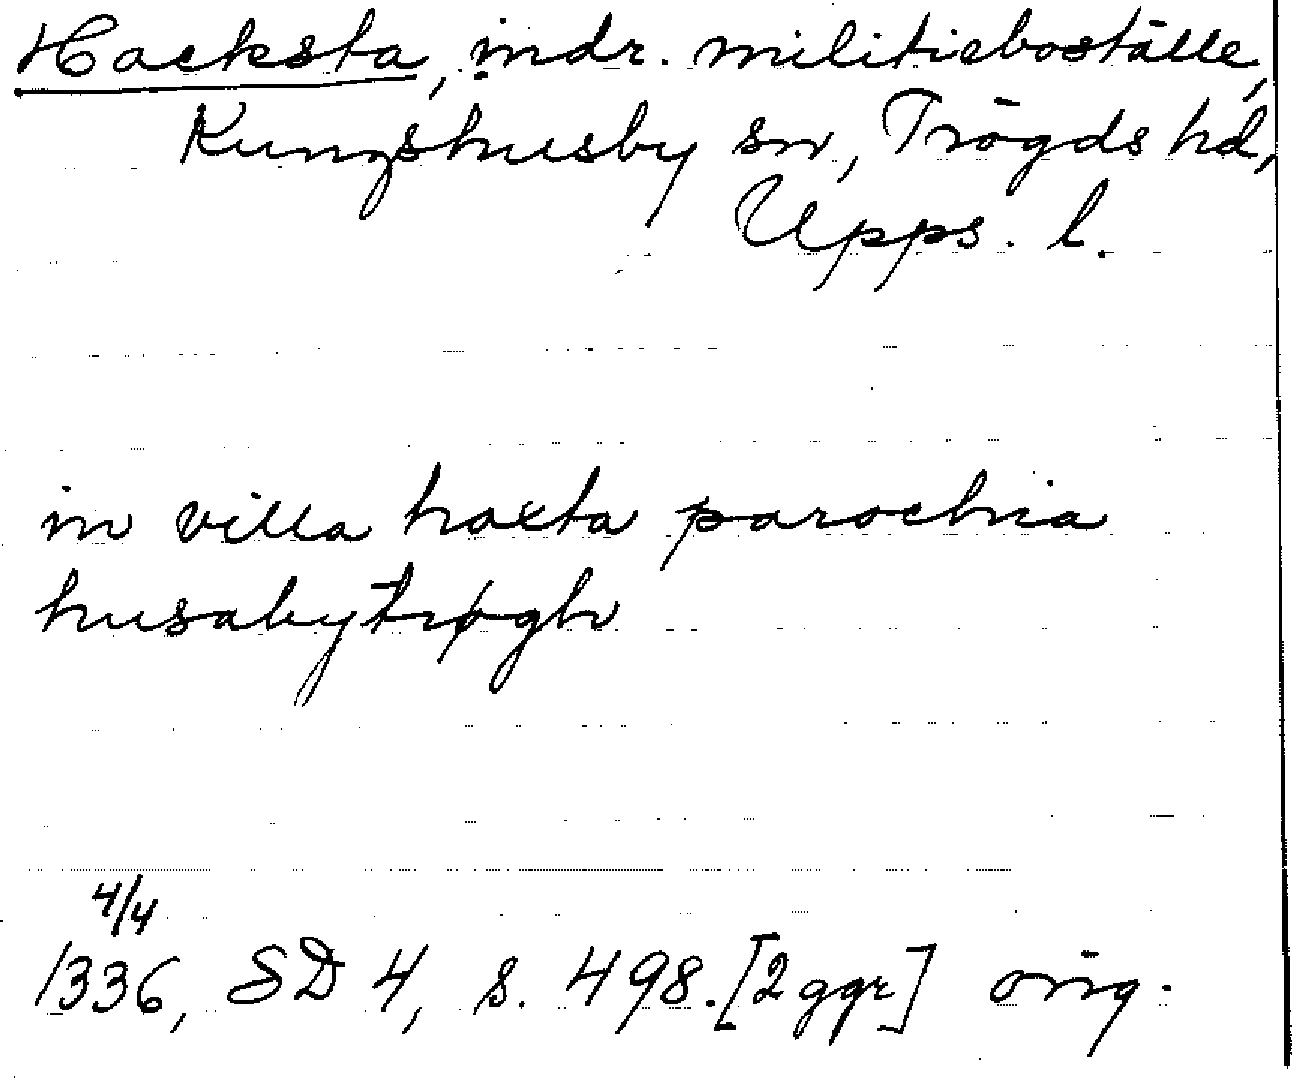 Hacksta, indr. militieboställe,
Kungshusby sn, Trögds hd,
Upps. l.
in villa haxta parochia
husabytrøgh
4/4
1336, SD 4, s. 498. [2 ggr] orig.